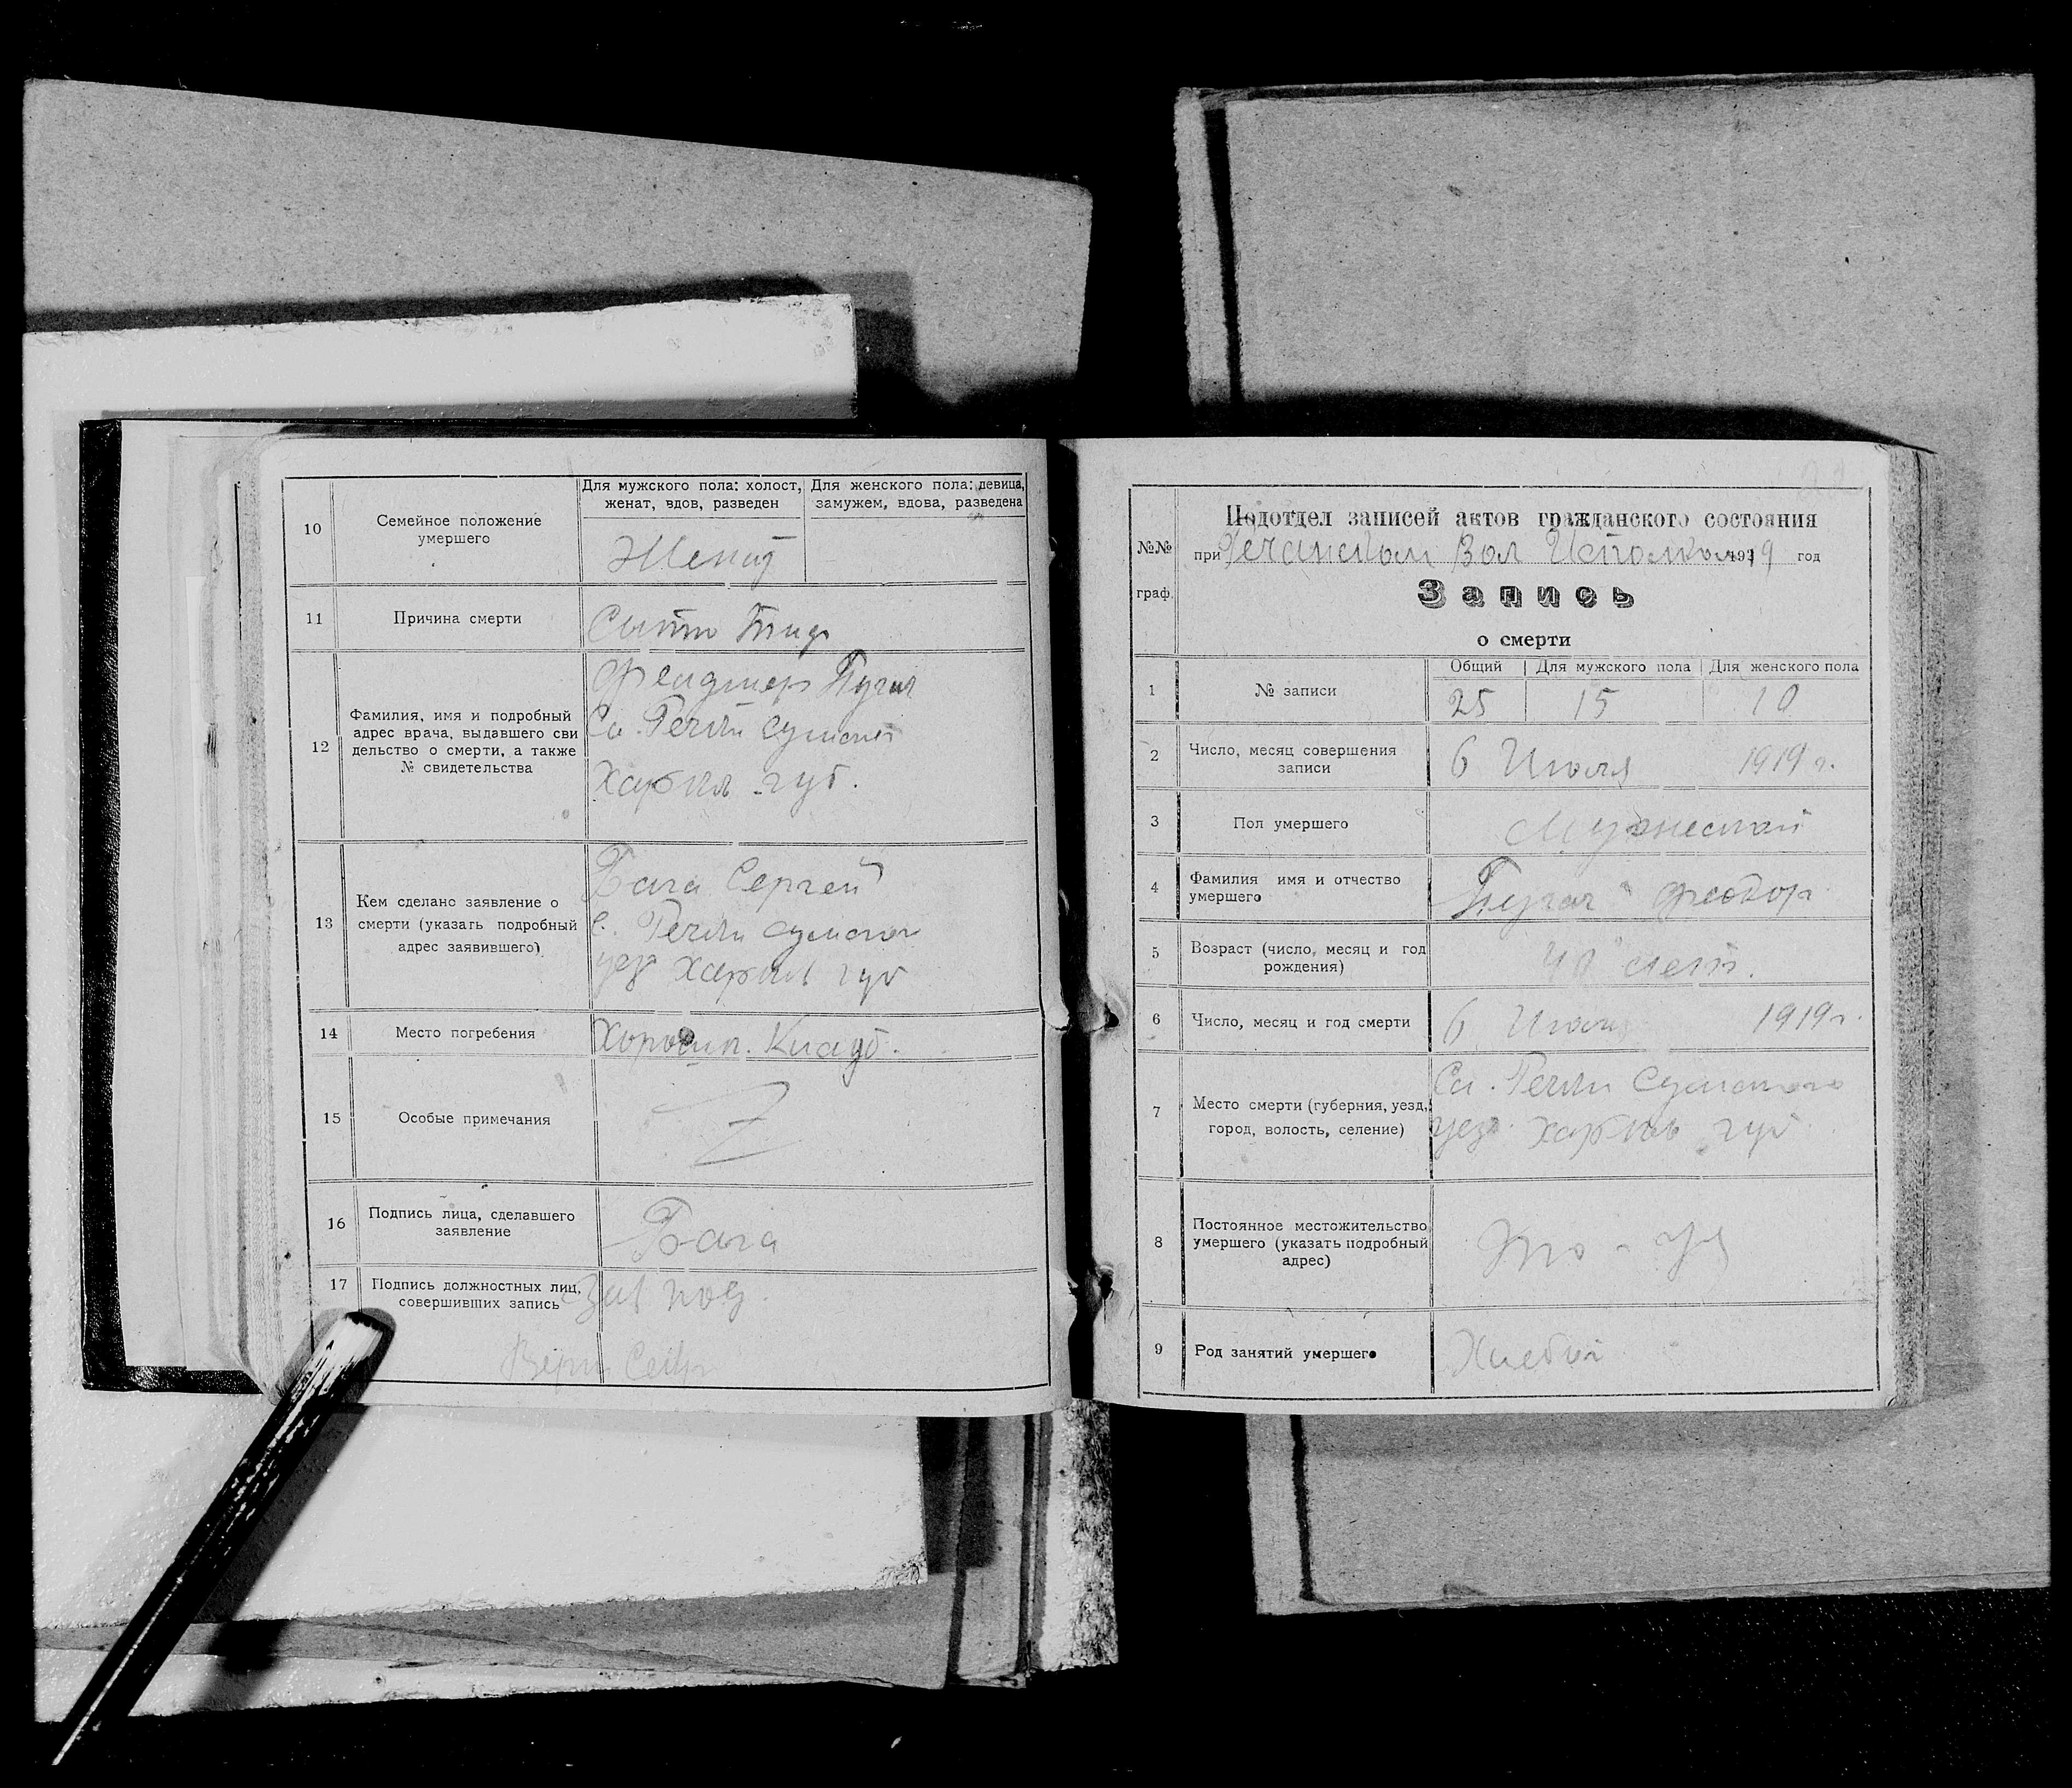 10
Семейное положение
умершего
Для мужского пола: холост,
женат, вдов, разведен
Для женского пола: девица,
замужем, вдова, разведена
Женат
11
Причина смерти
12
Фамилия, имя и подробный
адрес врача, выдавшего сви
дельство о смерти, а также
№ свидетельства
Пугач
Сл. Речки Сумск
Харьков губ.
13
Кем сделано заявление о
смерти (указать подробный
адрес заявившего)
Бага Сергей
с. Речки Сумског
уез Харьков губ
14
Место погребения
15
Особые примечания
16
Подпись лица, сделавшего
заявление
Бага
17
Подпись должностных лиц,
совершивших запись
Зав под.
№№
граф.
Подотдел записей актов гражданского состояния
при Речанском Вол Исполком 1919 год
Запись
о смерти
1
№ записи
Общий
Для мужского пола
Для женского пола
25
15
10
2
Число, месяц совершения
записи
6 Июля 1919 г.
3
Пол умершего
Мужеской
4
Фамилия имя и отчество
умершего
Пугач Феодор
5
Возраст (число, месяц и год
рождения)
40 лет.
6
Число, месяц и год смерти
6 Июля 1919 г.
7
Место смерти (губерния, уезд,
город, волость, селение)
Сл. Речки Сумского
уез. Харьков губ.
8
Постоянное местожительство
умершего (указать подробный
адрес)
9
Род занятий умершего
Хлебоп